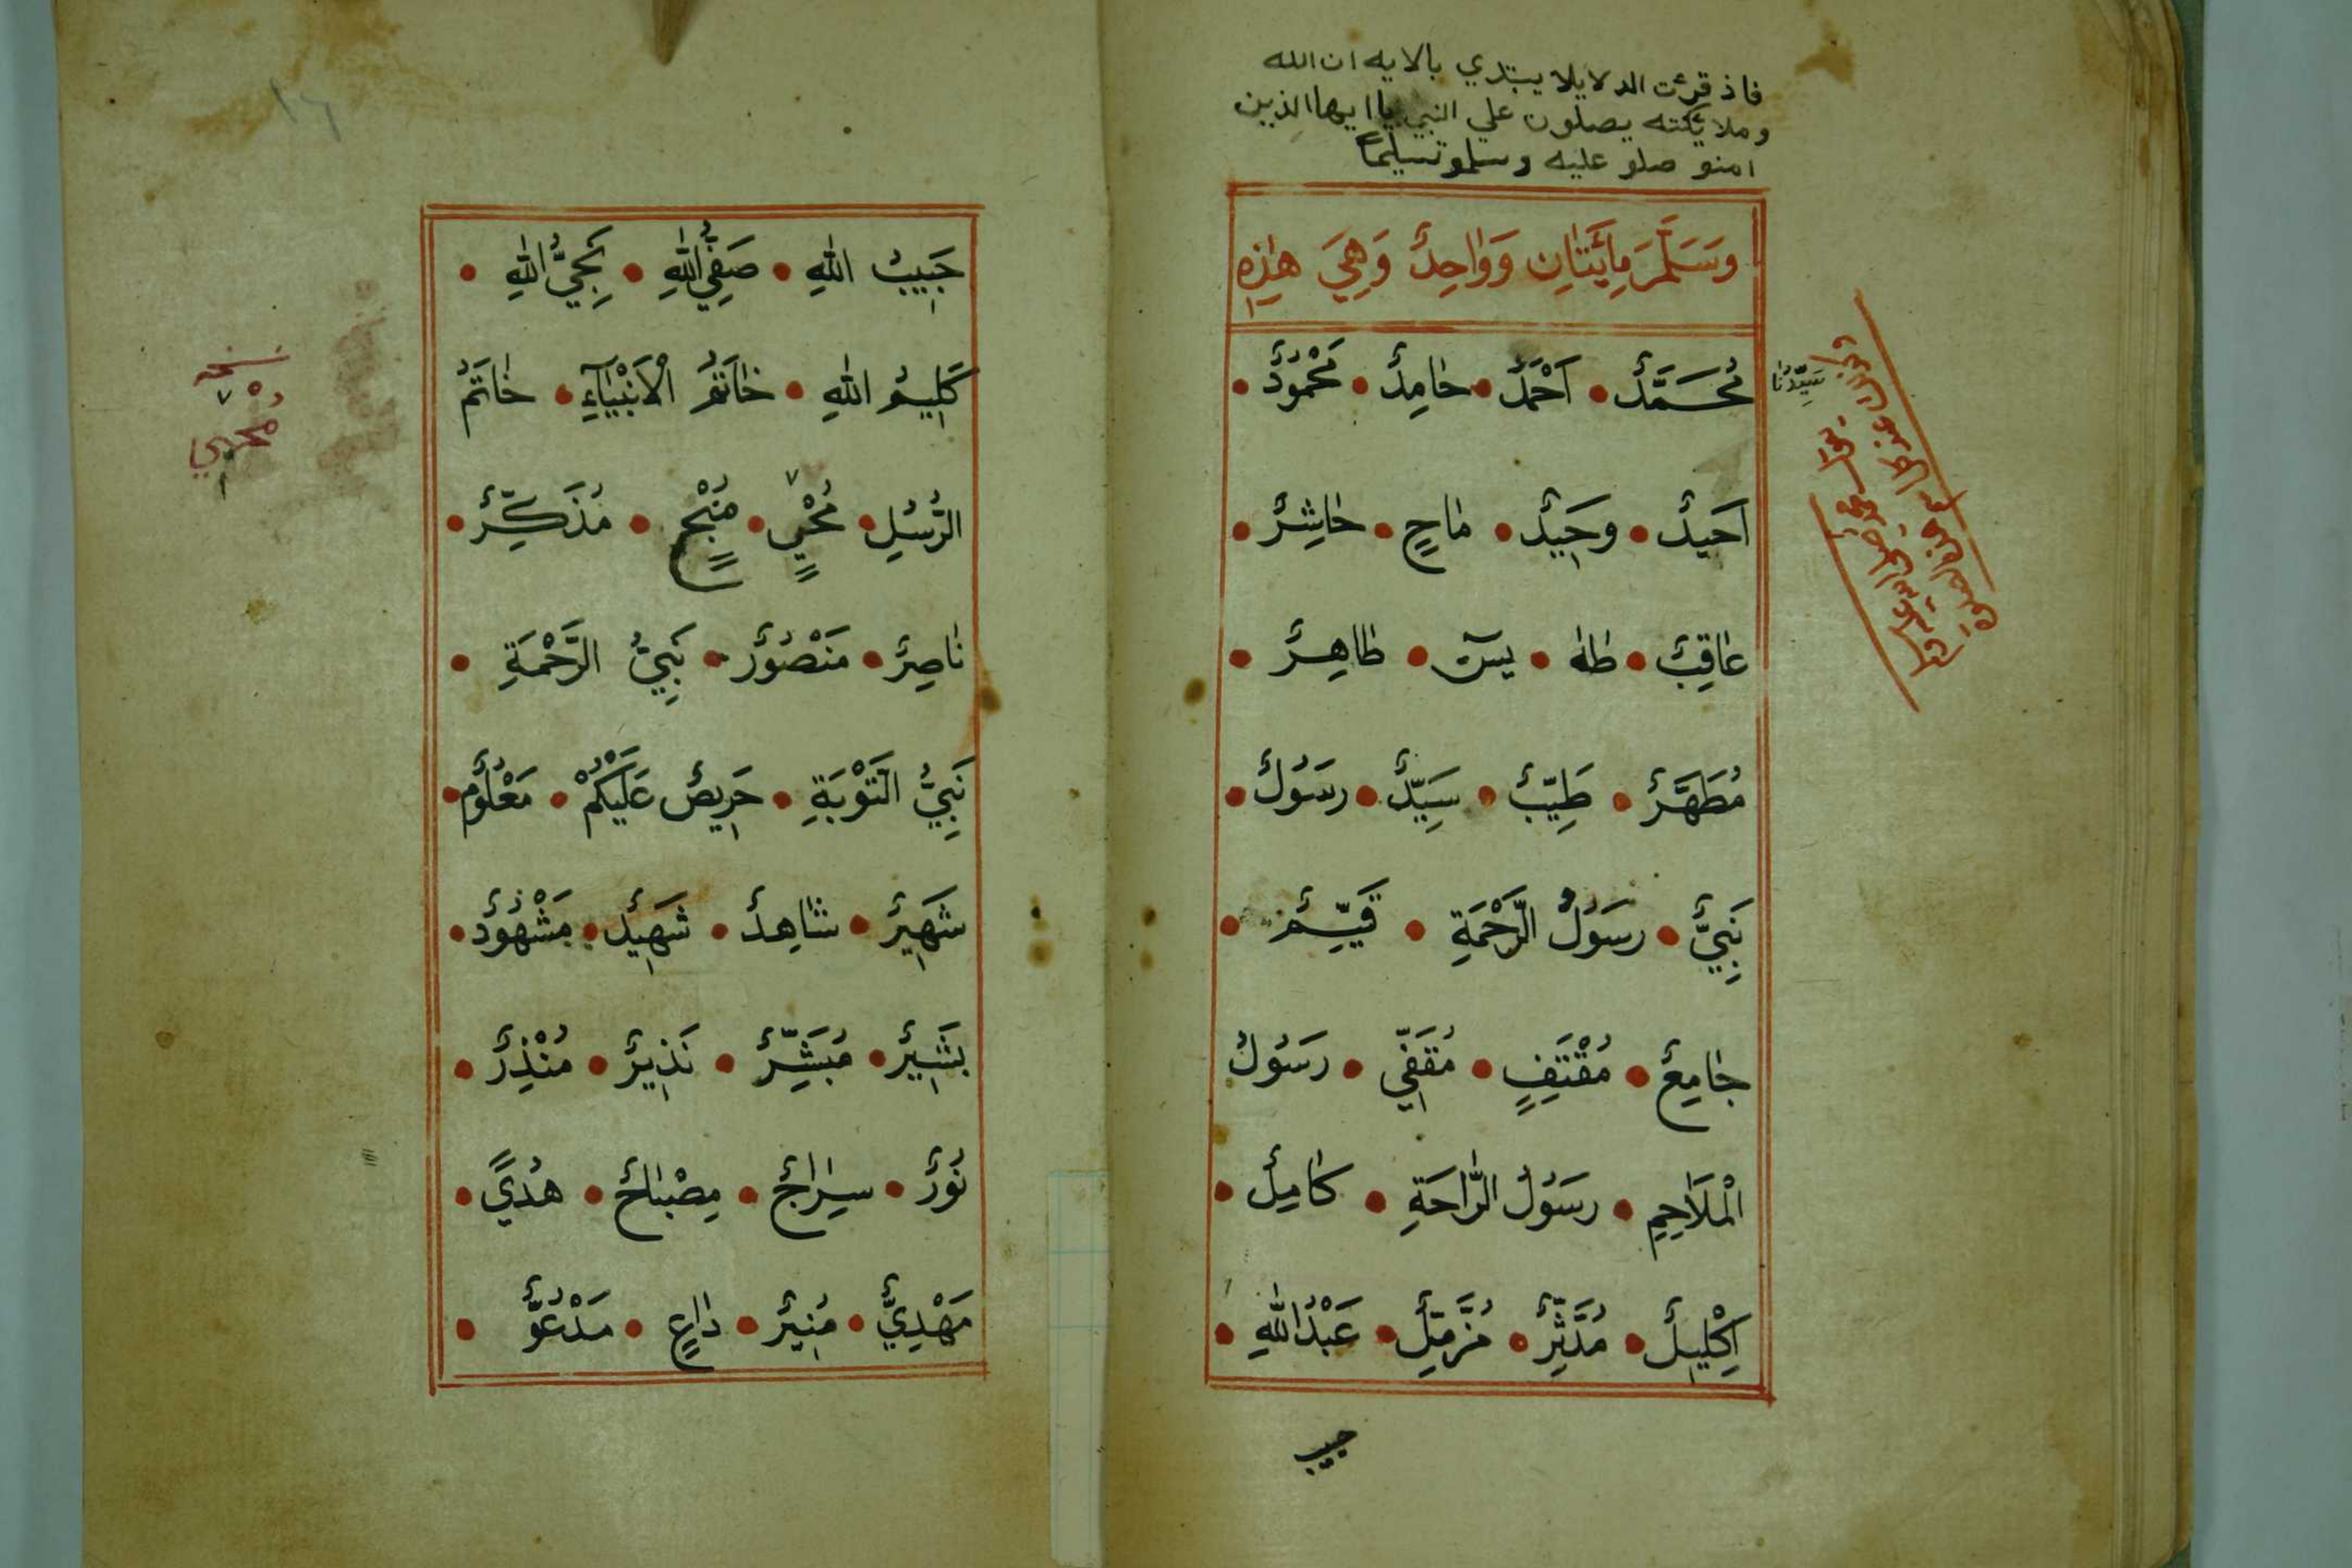 فاذ قرئت الدلايلا يبتدي بالايه ان الله
وملائكته يصلون علي النبي يا ايها الذين
امنو صلو عليه وسلمو تسليماً
وَسَلَّمَ مِائَتَانِ وَوَاحِدٌ وَهِيَ هٰذِهِ
سَيِّدُنَا
مُحَمَّدٌ • اَحْمَدٌ • حَامِدٌ • مَحْمُوُدٌ •
اَحيدٌ • وحَيِدٌ • مَاحٍ • حَاشِرٌ •
عَاقِبٌ • طٰهٰ • يسٓ • طَاهِرٌ •
مُطَهَّرٌ • طَيِّبٌ • سَيِّدٌ • رسَوُلٌ •
نَبِيٌّ • رسَوُلُ الرَّحْمَةِ • قَيِّمٌ •
جَامِعٌ • مُقْتَفٍ • مُقَفِّي • رسَوُلُ
الْمَلَاحِمِ • رسَوُلُ الرَّاحَةِ • كَامِلٌ •
اِكْلِيلٌ • مُدَّثِّرٌ • مُزَّمِّلٌ • عَبْدُ اللّٰهِ •
حبيب
١٦
حَبِيبُ اللّٰهِ • صَفِيُّ اللّٰهِ • نَجِيُّ اللّٰهِ •
كَلِيمُ اللّٰهِ • خَاتَمُ الْاَنْبْيَآءِ • خَاتَمُ
الرُّسُلِ • مُحْيٍ • مُنْجٍ • مُذَكِّرٌ •
نَاصِرٌ • مَنْصُوُرٌ • نَبِيُّ الرَّحْمَةِ •
نَبِيُّ التَّوْبَةِ • حَرِيصٌ عَلَيْكُمْ • مَعْلُوُمٌ •
شَهِيرٌ • شَاهِدٌ • شَهِيدٌ • مَشْهُوُدٌ •
بشَيِرٌ • مُبَشِّرٌ • نَذِيرٌ • مُنْذِرٌ •
نُوُرٌ • سِرَاجٌ • مِصْبَاحٌ • هُدًي •
مَهْدِيٌّ • مُنِيرٌ • دَاعٍ • مَدْعُوٌّ •